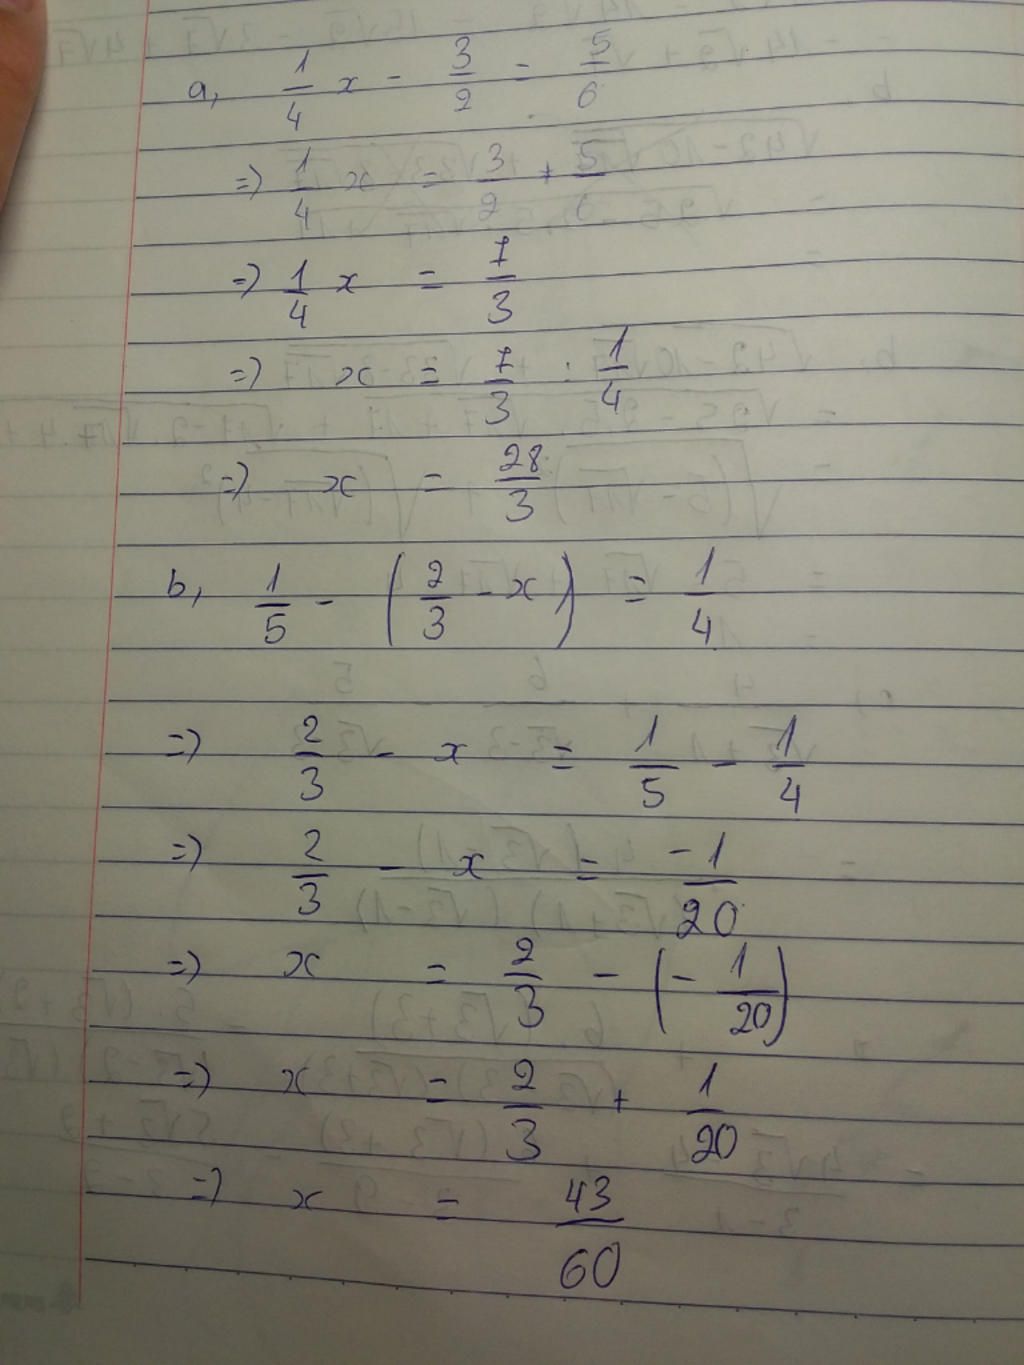 a, 1/4 x - 3/2 = 5/6
=> 1/4 x = 3/2 + 5/6
=> 1/4 x = 7/3
=> x = 7/3 : 1/4
=> x = 28/3
b, 1/5 - (2/3 - x) = 1/4
=> 2/3 - x = 1/5 - 1/4
=> 2/3 - x = -1/20
=> x = 2/3 - (-1/20)
=> x = 2/3 + 1/20
=> x = 43/60